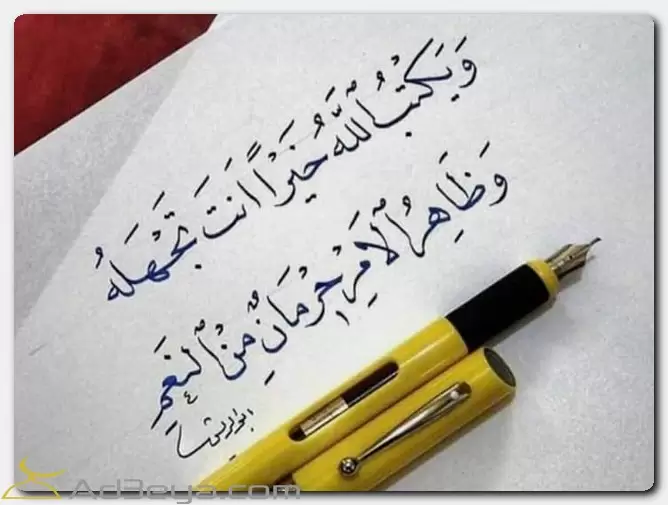 وَيَكتبُ اللّٰه خَيرًا انتَ تَجْهَلهُ
وَظَاهِرُ الامرِ حِرْمَانٌ مِنَ النِعَمِ
Ad3eya.com